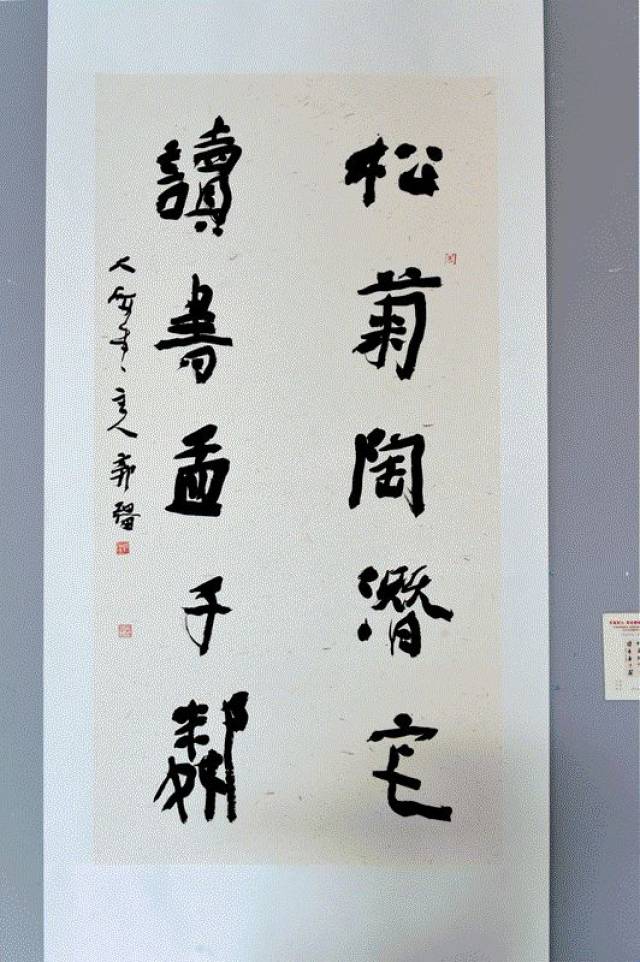 松菊陶潛宅
讀書孟子鄰
主人 郭疆